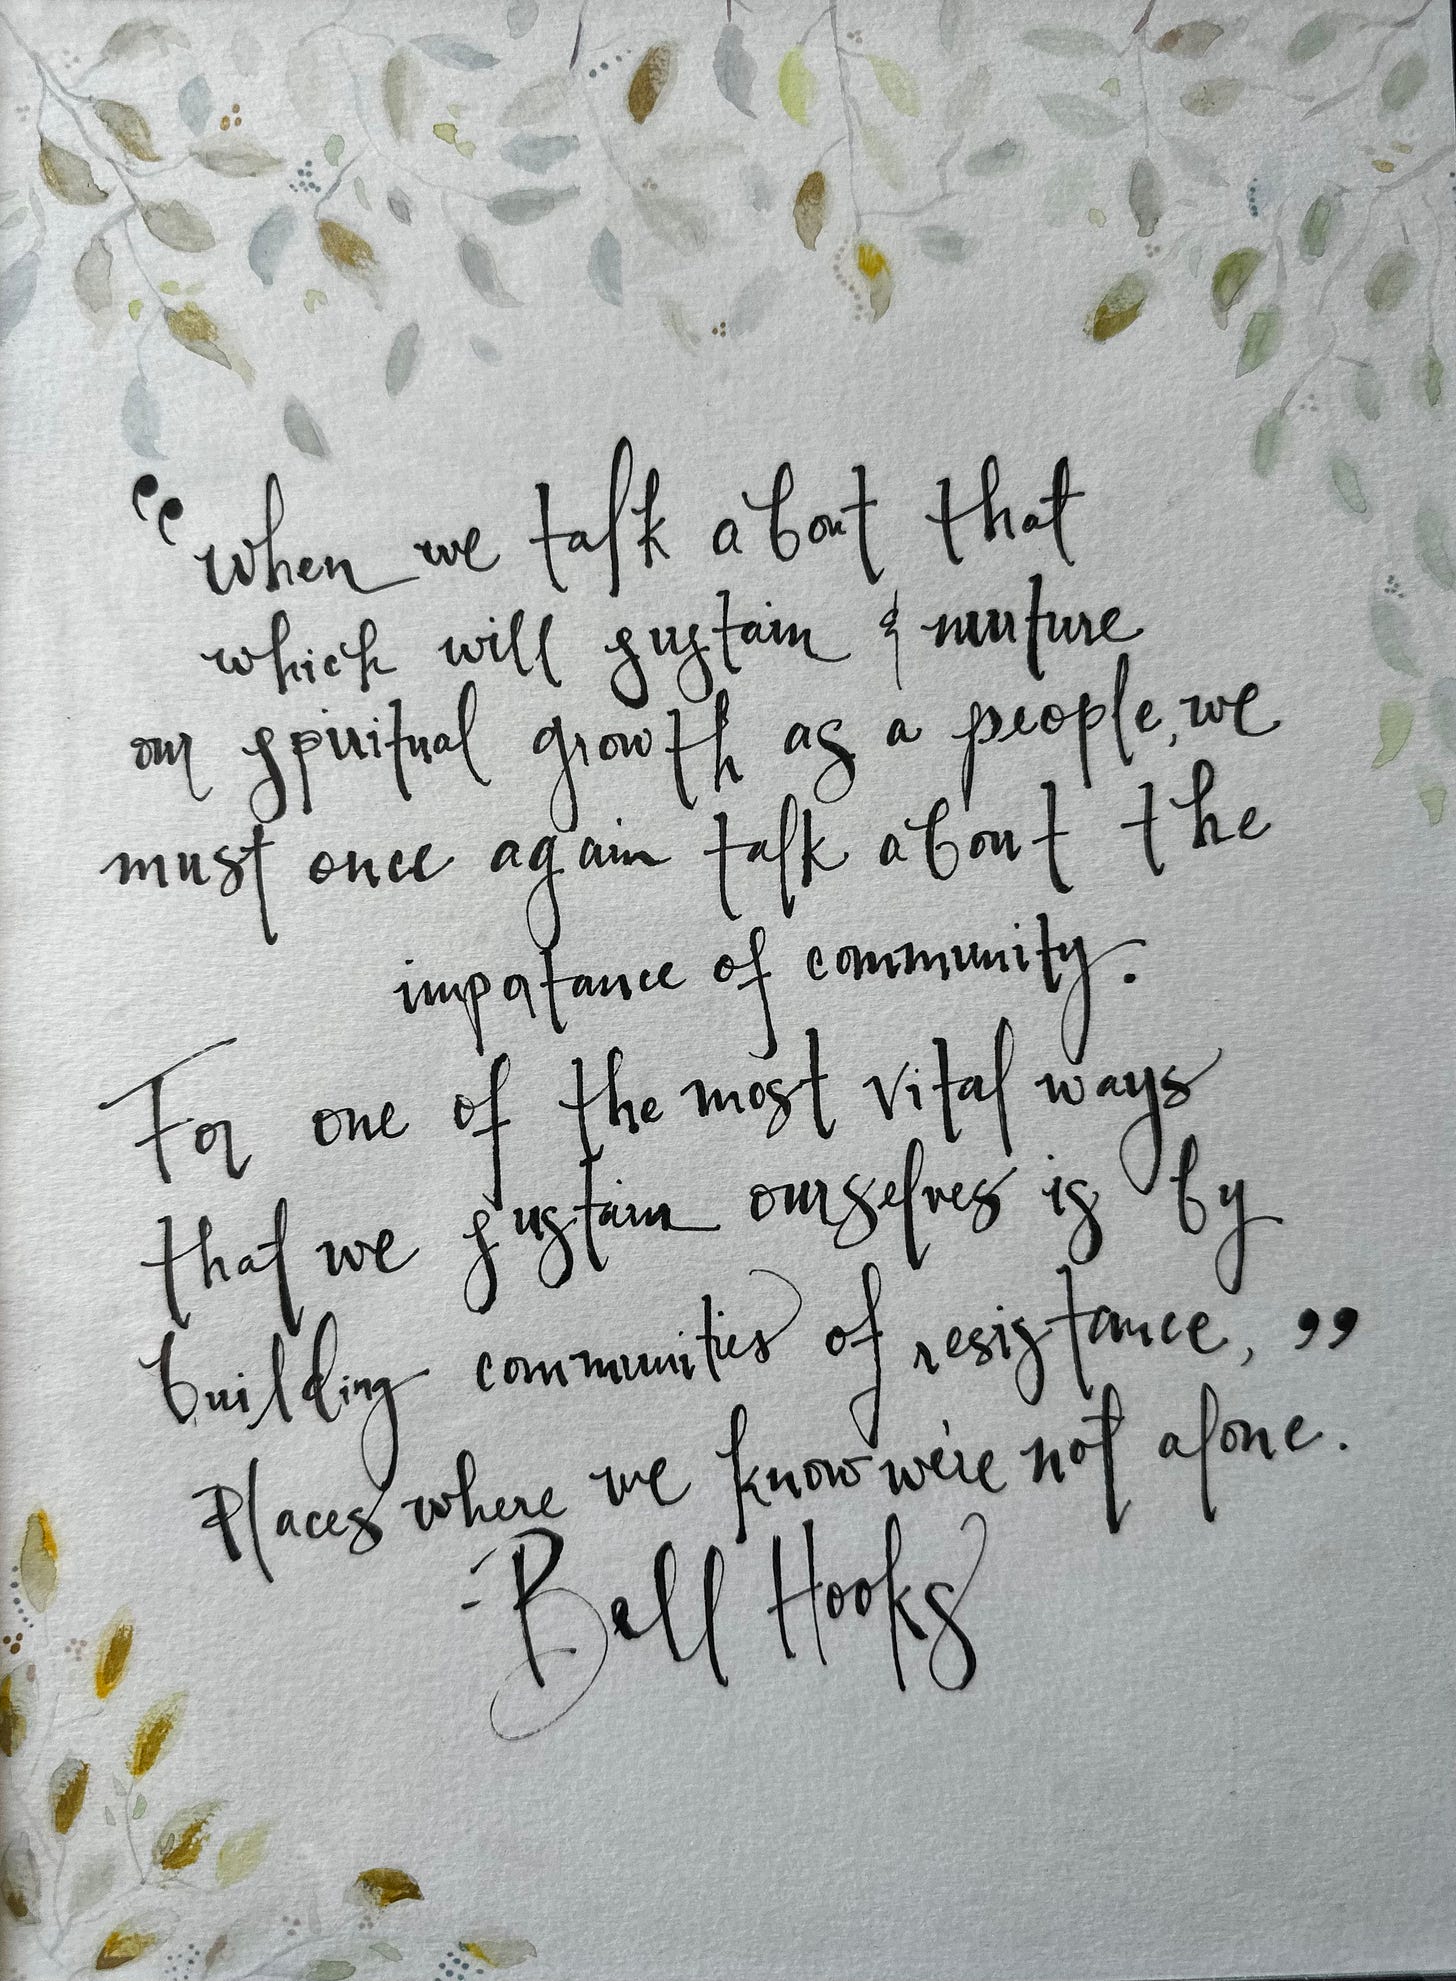 “when we talk about that
which will sustain & nurture
our spiritual growth as a people, we
must once again talk about the
importance of community.
For one of the most vital ways
that we sustain ourselves is by
building communities of resistance, ”
Places where we know we're not alone.
- Bell Hooks